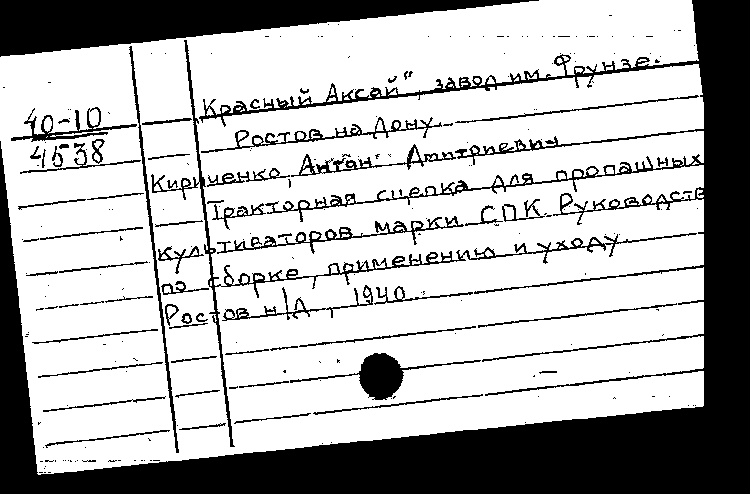 40-10
4538
Красный Аксай", завод им. Фрунзе.
Ростов на Дону.
Кириченко, Антан. Дмитриевич
Тракторная сцепка для пропашных
культиваторов марки СПК Руководств
по сборке, применению и уходу.
Ростов н/Д, 1940.